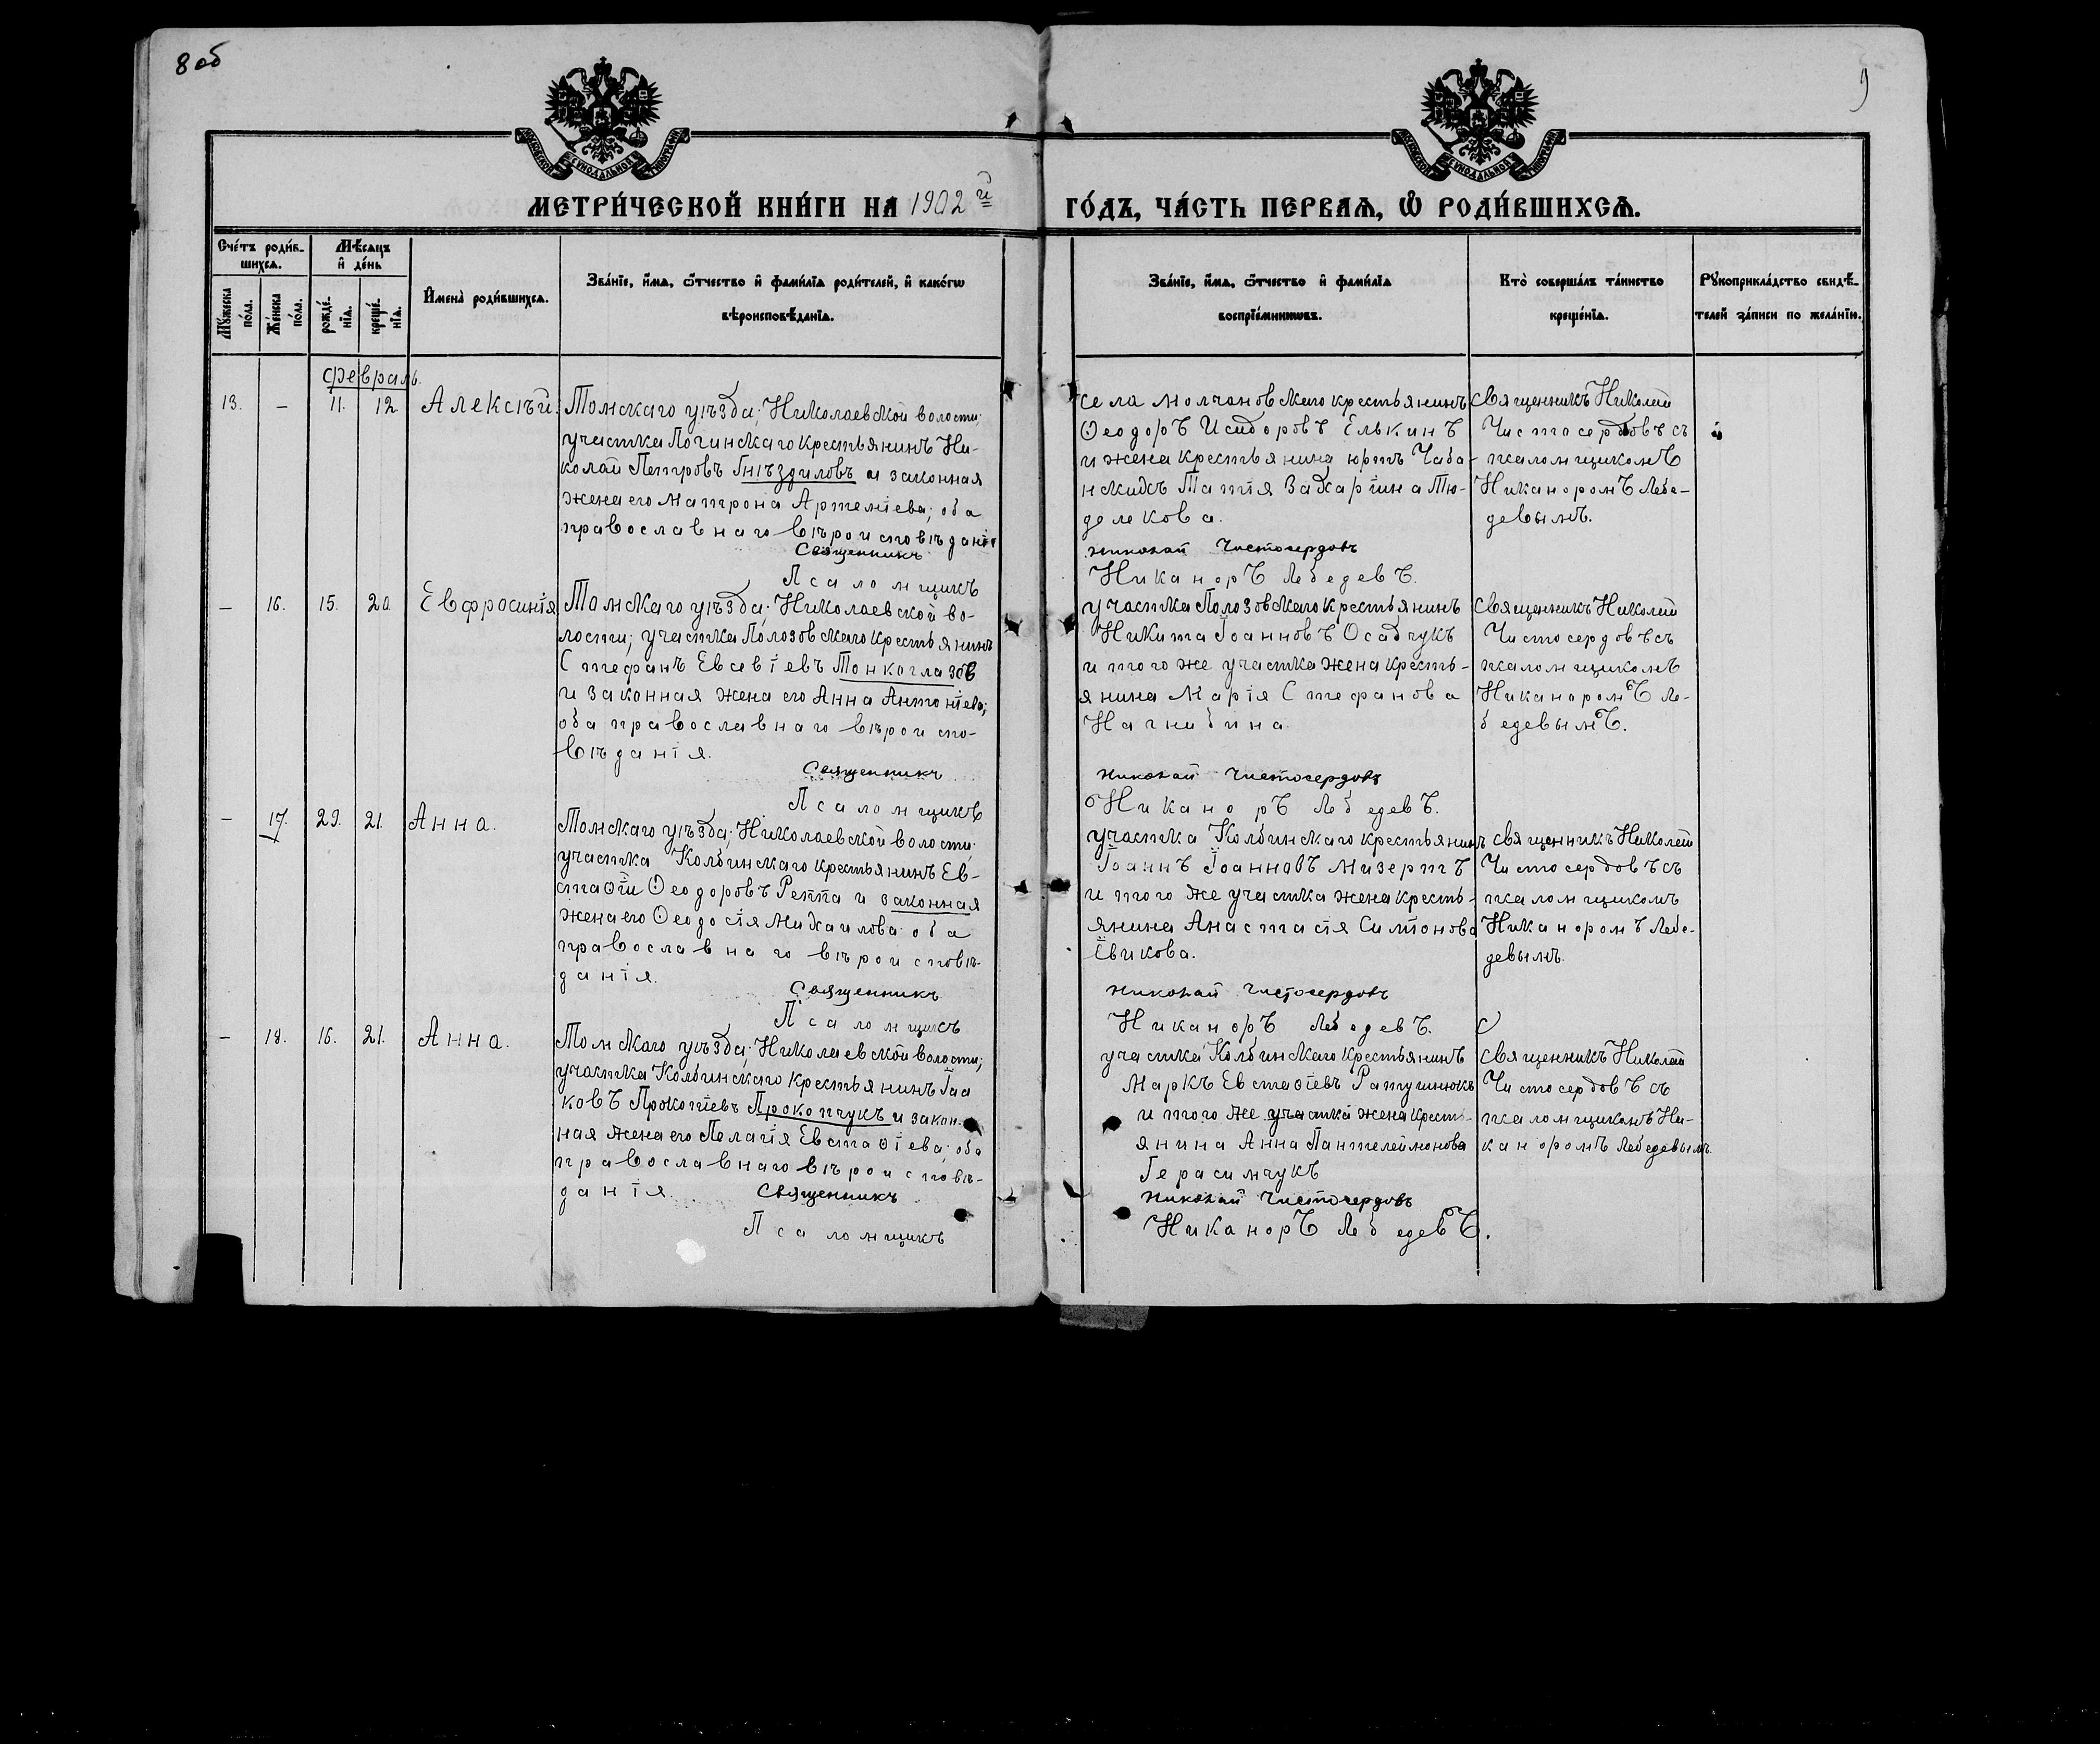 8 об
9
МЕТРИ́ЧЕСКОЙ КНИ́ГИ НА 1902й ГО́ДЪ, ЧА́СТЬ ПЕРВАѦ, Ѿ РОДИ́ВШИХСѦ.
Сче́тъ роди́в-
шихсѧ.
Мѣ́сѧцъ
и̂ де́нь
Мꙋ́жеска по́ла.
Же́нска по́ла.
рожде́-
нїѧ.
креще́-
нїѧ.
И̂мена̀ роди́вшихсѧ.
Зва́нїе, и҆́мѧ, ѻ҆́тчество и҆ фами́лїѧ роди́телей, и҆ како́гѡ
вѣроисповѣ́данїѧ.
Зва́нїе, и҆́мѧ, ѻ҆́тчество и҆ фами́лїѧ
воспрїе́мниковъ.
Кто̀ соверша́лъ та́инство
креще́нїѧ.
Рꙋкоприкла́дство свидѣ́-
телей за́писи по жела́нїю.
февраль.
13. – 11. 12. Алексѣй.
Томскаго уѣзда; Николаевской волости;
участка Логинскаго крестьянинъ Ни-
колай Петровъ Гнѣздиловъ и законная
жена его Матрона Артемiева; оба
православнаго вѣроисповѣданiя
Священникъ
Псаломщикъ
села Молчановскаго крестьянинъ
Ѳеодоръ Исидоровъ Елькинъ
и жена крестьянина юртъ Чаба-
нскихъ Татiя Захарiина Тю-
делекова.
Николай Чистосердовъ
Никаноръ Лебедевъ.
Священникъ Николай
Чистосердовъ съ
псаломщикомъ
Никаноромъ Лебе-
девымъ.
– 16. 15. 20. Евфросинiя
Томскаго уѣзда; Николаевской во-
лости; участка Полозовскаго крестьянинъ
Стефанъ Евсевiевъ Тонкоглазов
и законная жена его Анна Антонiева;
оба православнаго вѣроиспо-
вѣданiя.
Священникъ
Псаломщикъ
участка Полозовскаго крестьянинъ
Никита Iоанновъ Осадчукъ
и того же участка жена кресть-
янина Марiя Стефанова
Нагнибина.
Николай Чистосердовъ
Никаноръ Лебедевъ.
Священникъ Николай
Чистосердовъ съ
псаломщикомъ
Никаноромъ Ле-
бедевымъ.
– 17. 29. 21. Анна.
Томскаго уѣзда; Николаевской волости;
участка Колбинскаго крестьянинъ Ев-
стаѳiй Ѳеодоровъ Реппа и законная
жена его Ѳеодосiя Михаилова оба
православнаго вѣроисповѣ-
данiя.
Священникъ
Псаломщикъ
участка Колбинскаго крестьянинъ
Iоаннъ Iоанновъ Мизертъ
и того же участка жена кресть-
янина Анастасiя Симiонова
Николай Чистосердовъ
Никаноръ Лебедевъ.
священникъ Николай
Чистосердовъ съ
псаломщикомъ
Никаноромъ Лебе-
девымъ.
– 18. 16. 21. Анна.
Томскаго уѣзда; Николаевской волости;
участка Колбинскаго крестьянинъ Iаа
ковъ Прокопiевъ Прокопчукъ и закон-
ная жена его Пелагiя Евстаѳiева; оба
православнаго вѣроисповѣ-
данiя.
Священникъ
Псаломщикъ
участка Колбинскаго крестьянинъ
Маркъ Евстаѳiевъ Ратушнюкъ
и того же участка жена кресть-
янина Анна Пантелеймонова
Герасимчукъ
Николай Чистосердовъ
Никаноръ Лебедевъ.
священникъ Николай
Чистосердовъ съ
псаломщикомъ Ни-
каноромъ Лебедевымъ.